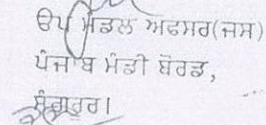 ਉਪ ਮੰਡਲ ਅਫਸਰ(ਜਸ)
ਪੰਜਾਬ ਮੰਡੀ ਬੋਰਡ,
ਸੰਗਰੂਰ।